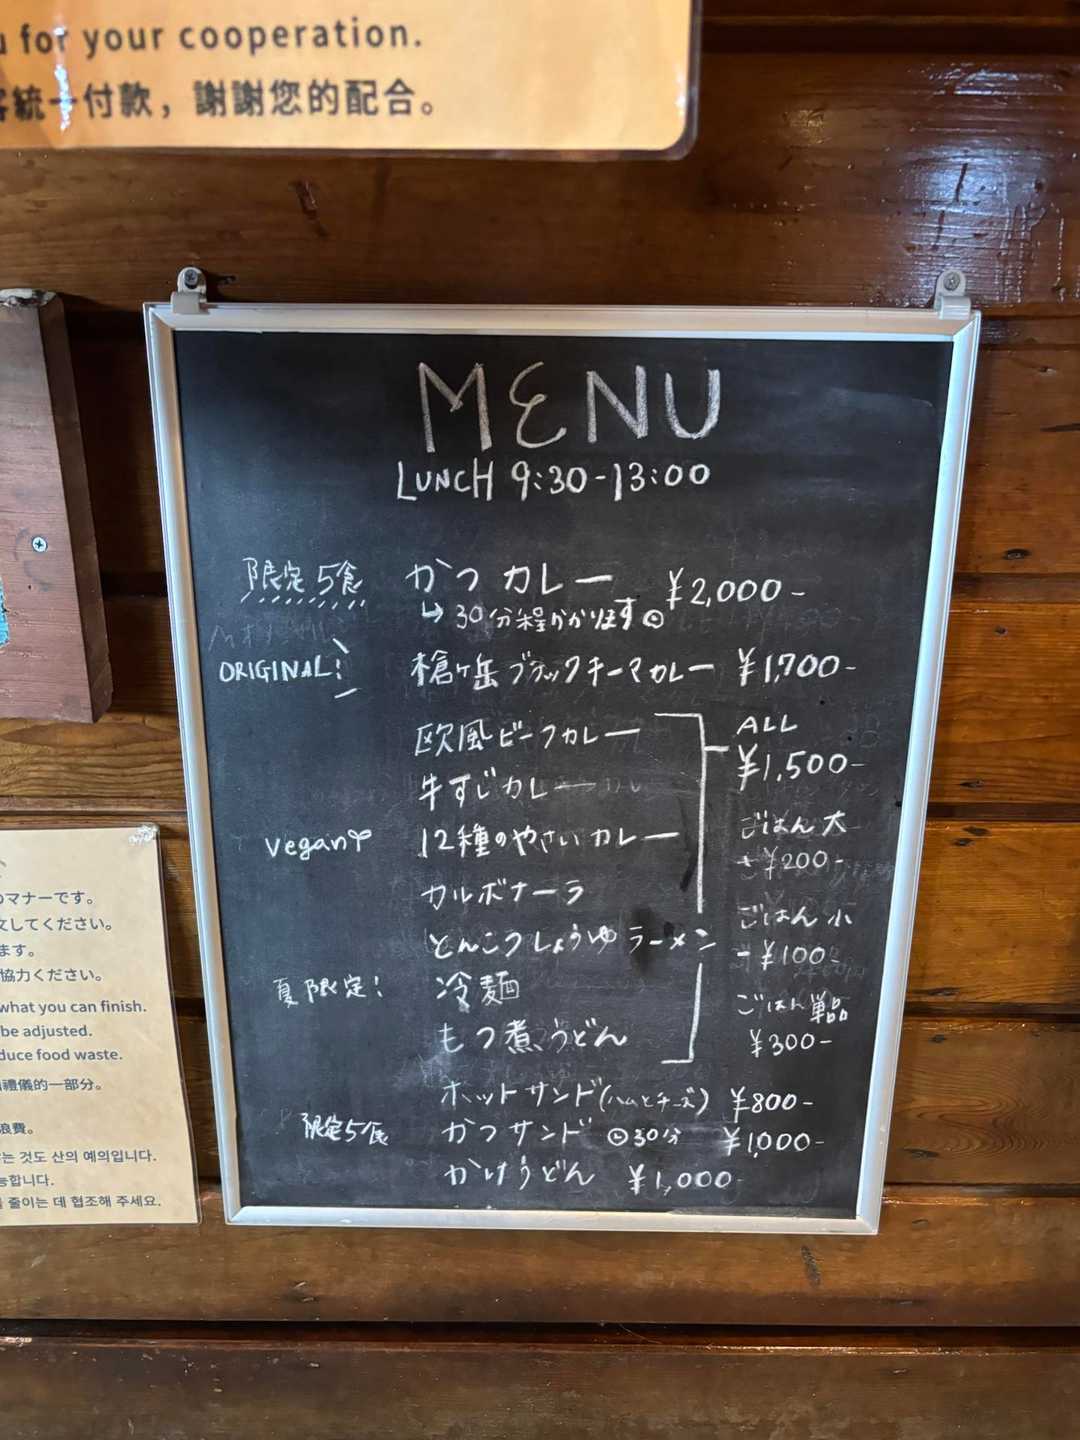 u for your cooperation.
客統一付款，謝謝您的配合。
MENU
LUNCH 9:30-13:00
限定5食 かつカレー ¥2,000-
↳ 30分程かかります
ORIGINAL! 槍ヶ岳ブラックキーマカレー ¥1,700-
欧風ビーフカレー
ALL
¥1,500-
牛すじカレー
vegan 12種のやさいカレー
カルボナーラ
とんこつしょうゆラーメン
夏限定! 冷麺
もつ煮うどん
ごはん大
+¥200-
ごはん小
-¥100-
ごはん単品
¥300-
ホットサンド(ハムとチーズ) ¥800-
限定5食 かつサンド 30分 ¥1,000-
かけうどん ¥1,000-
のマナーです。
文してください。
ます。
協力ください。
what you can finish.
be adjusted.
duce food waste.
禮儀的一部分。
浪費。
는 것도 산의 예의입니다.
능합니다.
를 줄이는 데 협조해 주세요.